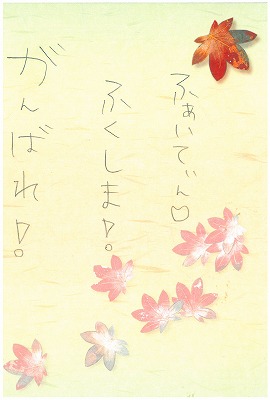 ふぁいてぃん♡
ふくしま!
がんばれ!